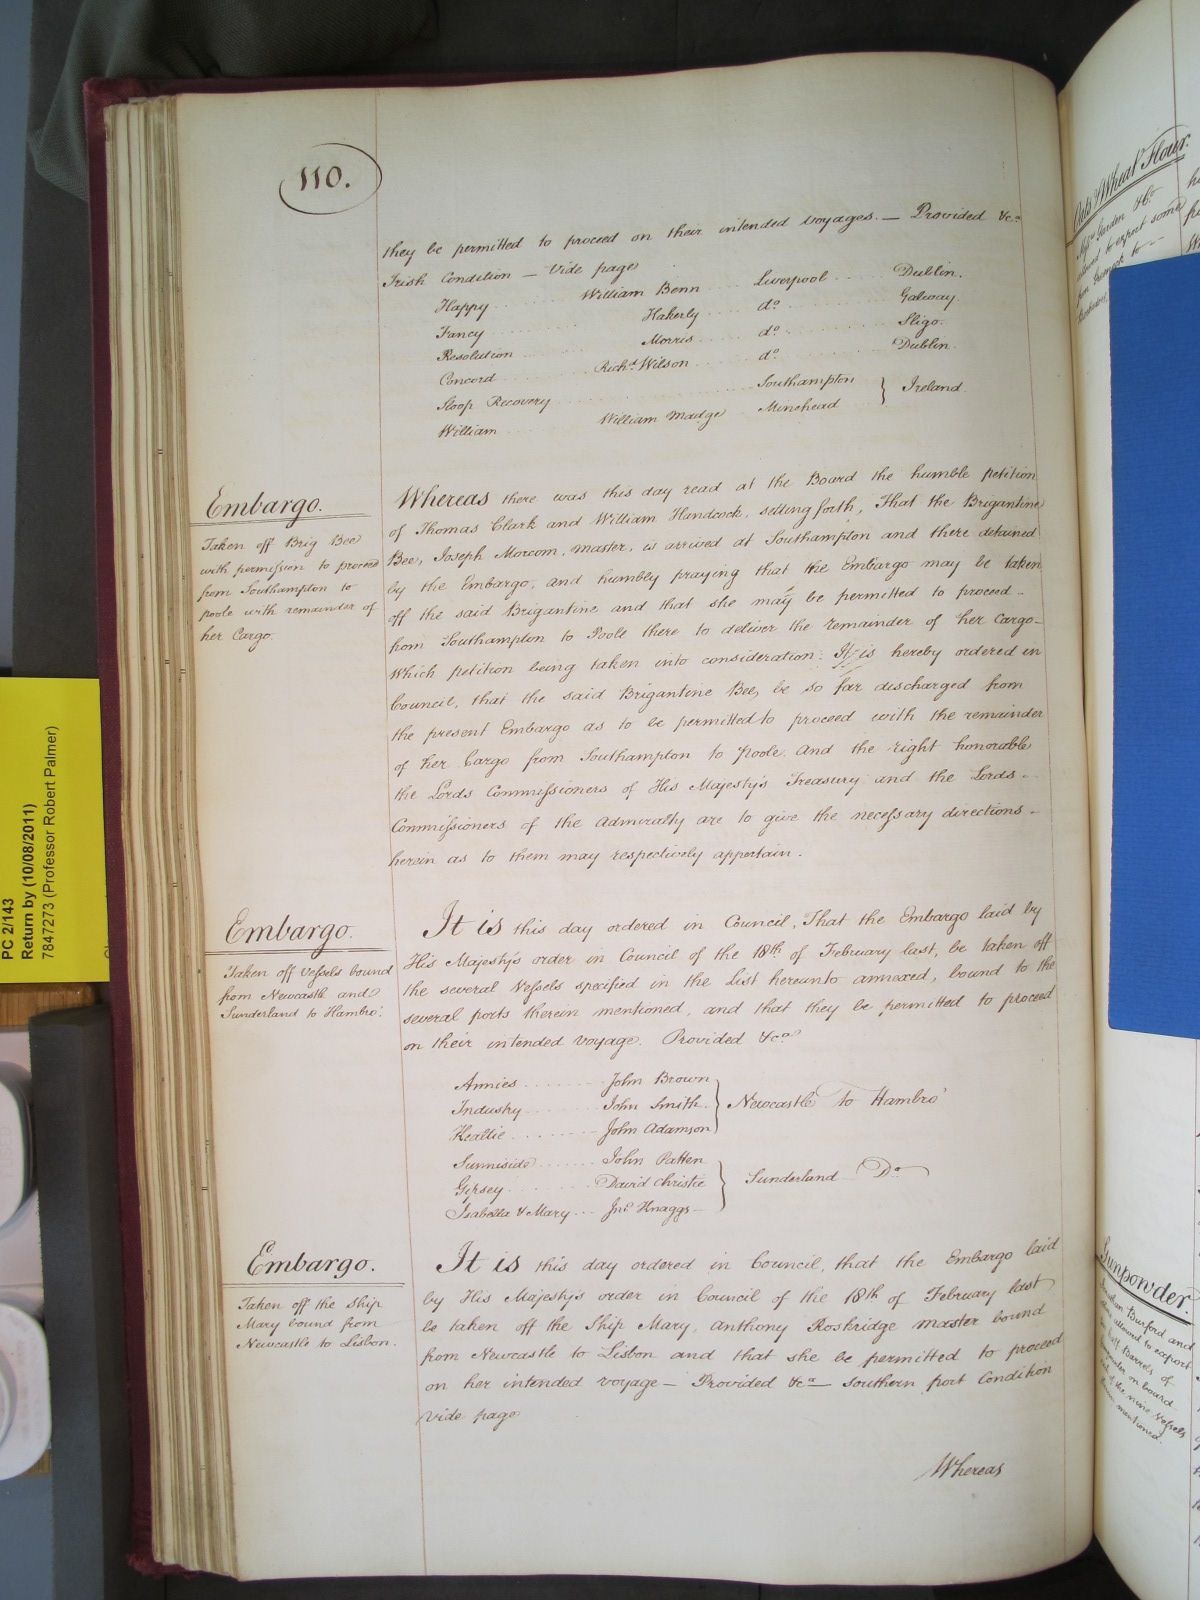 110.
they be permitted to proceed on their intended voyages. — Provided &ca
Irish Condition — Vide page
Happy ...... William Benn ...... Liverpool ...... Dublin.
Fancy ...... Hakerly ...... do ...... Galway
Resolution ...... Morris ...... do ...... Sligo.
Concord ...... Richd. Wilson ...... do ...... Dublin
Sloop Recovery ...... Southampton } Ireland
William ...... William Madge Minehead
Embargo.
Taken off Brig Bee
with permission to proceed
from Southampton to
poole with remainder of
her Cargo.
Whereas there was this day read at the Board the humble petition
of Thomas Clark and William Handcock, setting forth, That the Brigantine
Bee, Joseph Morcom, master, is arrived at Southampton and there detained
by the Embargo, and humbly praying that the Embargo may be taken
off the said Brigantine and that she may be permitted to proceed -
from Southampton to Poole there to deliver the remainder of her Cargo -
Which petition being taken into consideration: It is hereby ordered in
Council, that the said Brigantine Bee, be so far discharged from
the present Embargo as to be permitted to proceed with the remainder
of her Cargo from Southampton to Poole. And the right honorable
the Lords Commissioners of His Majesty's Treasury and the Lords -
Commissioners of the Admiralty are to give the necessary directions -
herein as to them may respectively appertain.
Embargo.
Taken off Vessels bound
from Newcastle and
Sunderland to Hambro'.
It is this day ordered in Council, That the Embargo laid by
His Majesty's order in Council of the 18th of February last, be taken off
the several Vessels specified in the List hereunto annexed, bound to the
several ports therein mentioned, and that they be permitted to proceed
on their intended voyage. Provided &ca
Annies ........ John Brown
Industry ........ John Smith. } Newcastle to Hambro'
Keallie ........ John Adamson
Sunniside ........ John Patten
Gipsey ........ David Christie } Sunderland Do
Isabella & Mary ... Jno. Knaggs
Embargo.
Taken off the ship
Mary bound from
Newcastle to Lisbon.
It is this day ordered in Council, that the Embargo laid
by His Majesty's order in Council of the 18th of February last
be taken off the Ship Mary, Anthony Roskridge master bound
from Newcastle to Lisbon and that she be permitted to proceed
on her intended voyage — Provided &ca — Southern port Condition
Vide page
Whereas
PC 2/143
Return by (10/08/2011)
7847273 (Professor Robert Palmer)
Oats & Wheat Flour.
allowed to export some
from Greenock to --
Gunpowder.
Burford and
allowed to export
half Barrels of
on board
of the nine Vessels
mentioned.